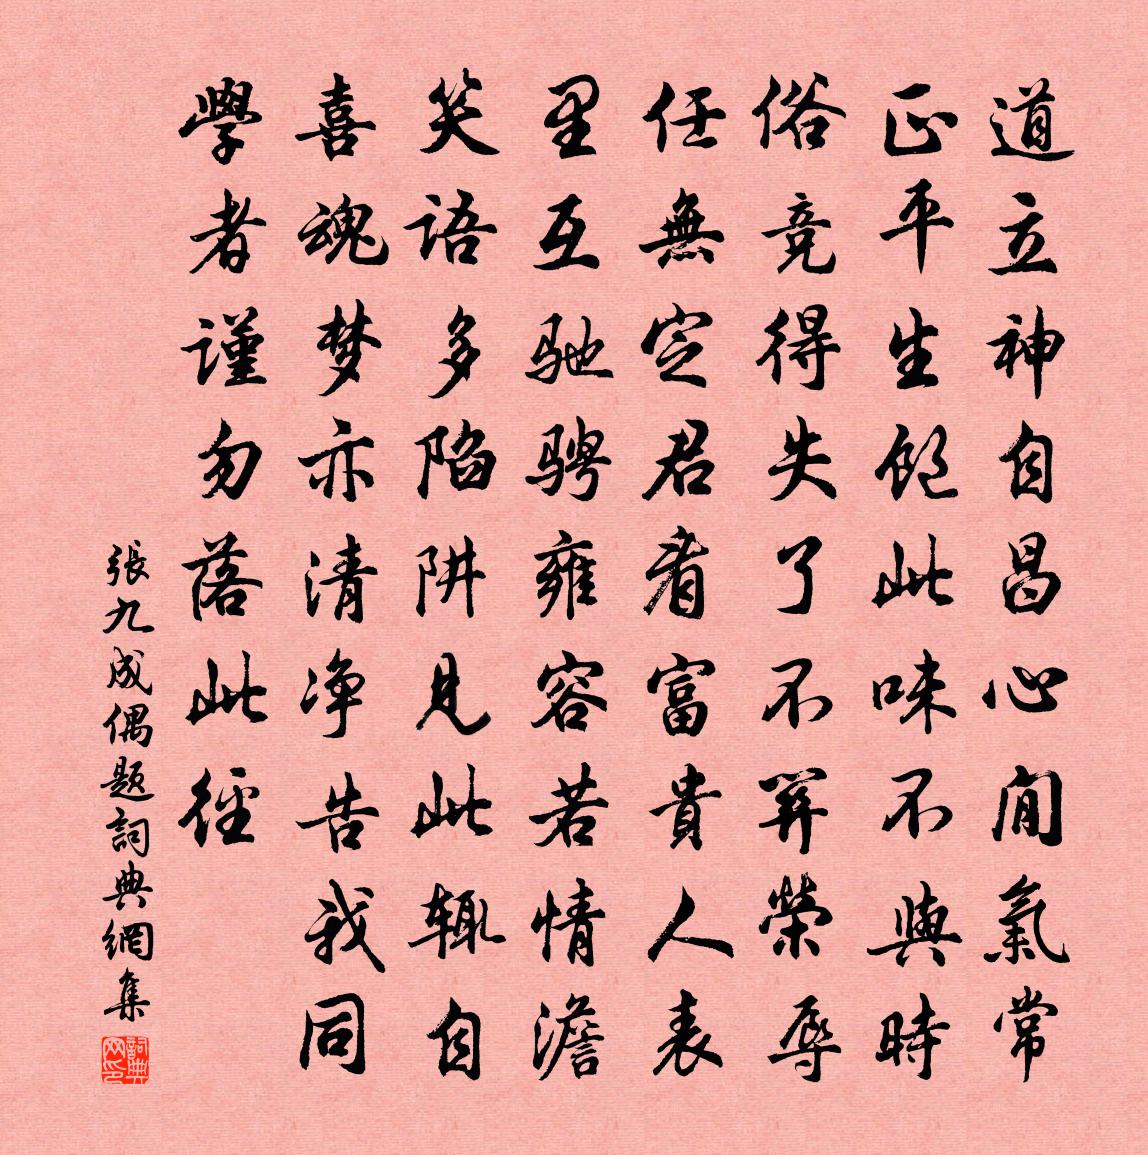 道立神自昌心閒氣常
正平生飽此味不與時
俗竞得失了不關榮辱
任無定君看富貴人表
里互驰骋雍容若情澹
笑語多陷阱見此辄自
喜魂梦亦清净告我同
學者謹勿落此徑
張九成偶題詞典網集
詞典网印